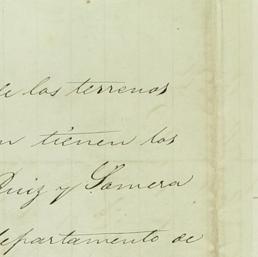 de los terrenos
n tienen los
Ruiz y Somera
departamento de